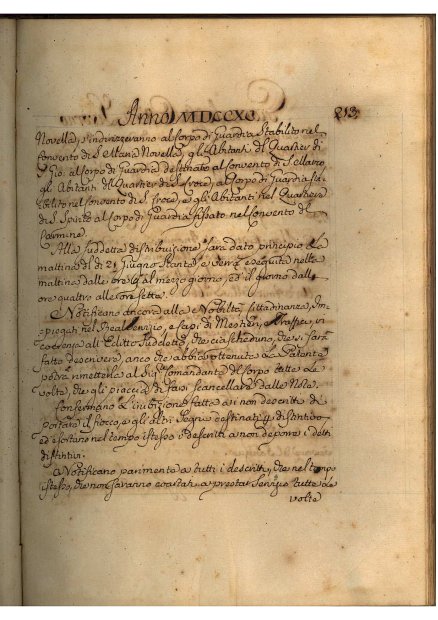 Anno MDCCXC. 213.
Novella, s'indirizzeranno al Corpo di Guardia Stabilito nel
Convento di S. Maria Novella, gli Abitanti del Quartier di
S. Gio: al Corpo di Guardia destinato al Convento di S. Marco
gli Abitanti del Quartier di S. Croce, al Corpo di Guardia sta-
bilito nel Convento di S. Croce, e gli Abitanti nel Quartiere
di S. Spirito al Corpo di Guardia fissato nel Convento del
Carmine.
Alla suddetta distribuzione sarà dato principio la
mattina del dì 21 Giugno stante, e verrà eseguita nella
mattina dalle ore al mezzo giorno, ed il giorno dall'
ore quattro alle ore sette.
Notificano ancora alla Nobiltà, Cittadinanza, Im-
piegati nel Real Servizio, e Capi di Mestieri, e Traffici, in
coerenza all'Editto suddetto, che ciascheduno, che si sarà
fatto descrivere, anco che abbia ottenuta la Patente
potrà rimetterla al Sig. Comandante del Corpo tutte le
volte, che gli piaccia di farsi scancellare dalle Note.
Confermano l'inibizione fatta a i non descritti di
portare il fiocco, e gli altri Segni destinati p. distintivo
ed esortano nel tempo istesso i descritti a non deporre i detti
distintivi.
Notificano parimente a tutti i descritti, che nel tempo
istesso, che non saranno costanti a prestar Servizio tutte le
volte